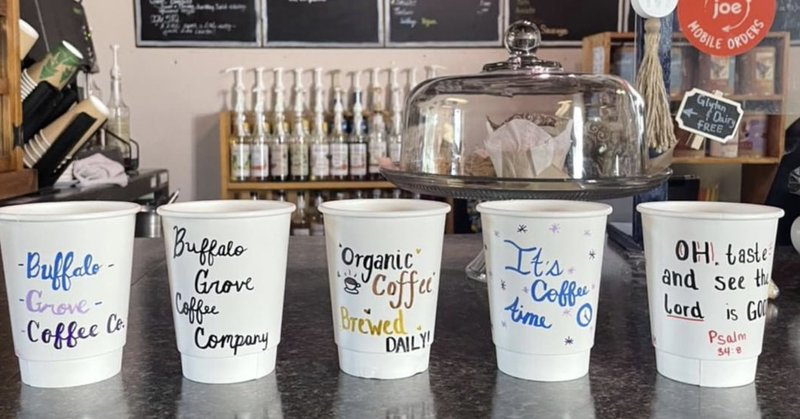 joe
MOBILE ORDERS
Gluten
& Dairy
FREE
-Buffalo-
-Grove-
-Coffee Co.
Buffalo
Grove
Coffee
Company
"Organic
Coffee"
Brewed
DAILY!
It's
Coffee
time
OH! taste
and see the
Lord is GOOD
Psalm
34:8